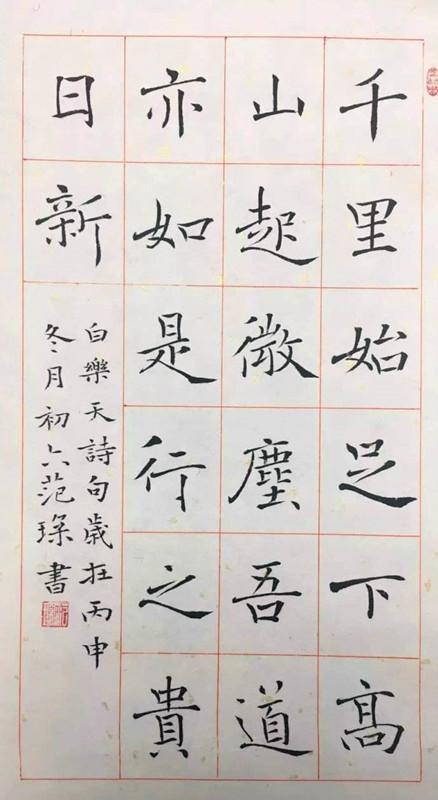 千里始足下高
山起微塵吾道
亦如是行之貴
日新
白樂天詩句歲在丙申
冬月初六范琛書